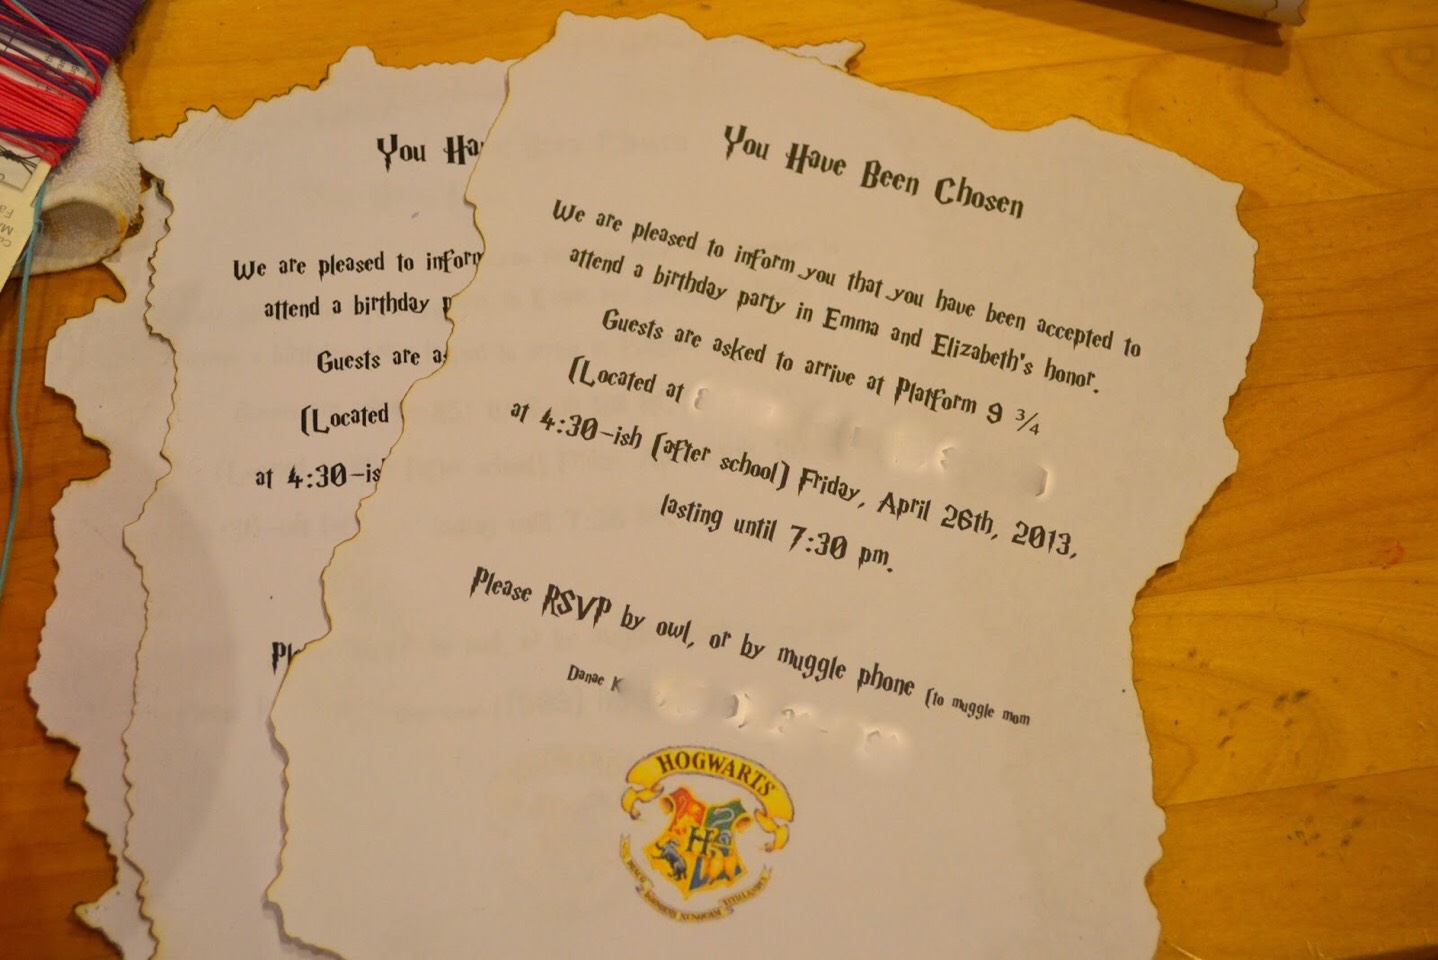 You Have Been Chosen
We are pleased to inform you that you have been accepted to
attend a birthday party in Emma and Elizabeth's honor.
Guests are asked to arrive at Platform 9 ¾
(Located at )
at 4:30-ish (after school) Friday, April 26th, 2013,
lasting until 7:30 pm.
Please RSVP by owl, or by muggle phone (to muggle mom
Danae K
HOGWARTS
H
You Ha
We are pleased to inform
attend a birthday p
Guests are a
(Located
at 4:30-is
Pl